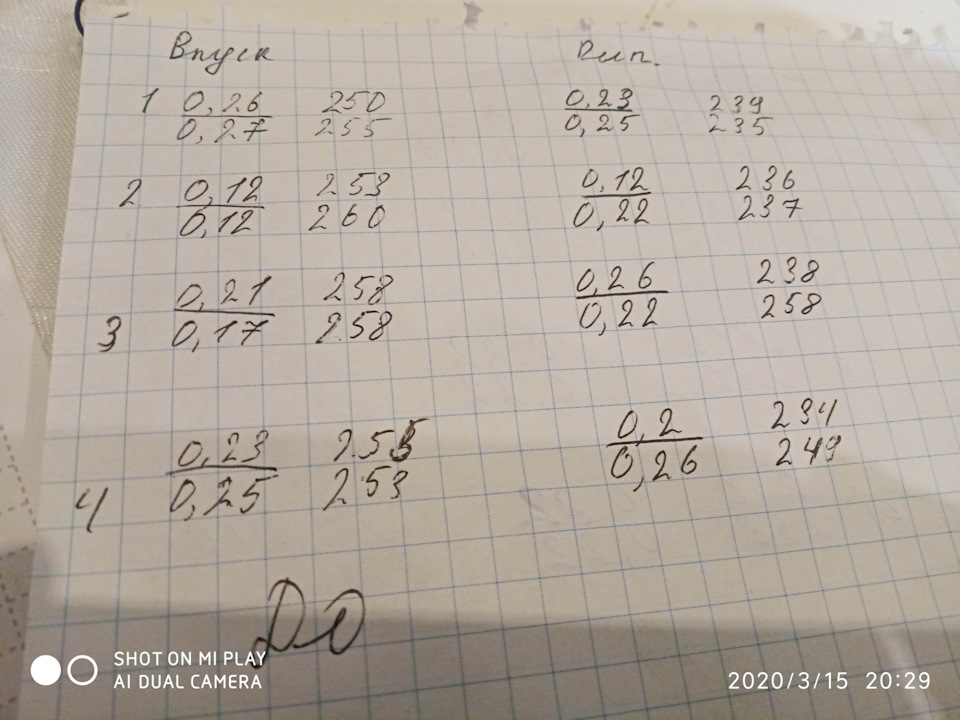 Впуск Вып.
1 0,26 250 0,23 239
0,27 255 0,25 235
2 0,12 253 0,12 236
0,12 260 0,22 237
0,21 258 0,26 238
3 0,17 258 0,22 258
0,23 255 0,2 234
4 0,25 253 0,26 249
ДО
SHOT ON MI PLAY
AI DUAL CAMERA 2020/3/15 20:29